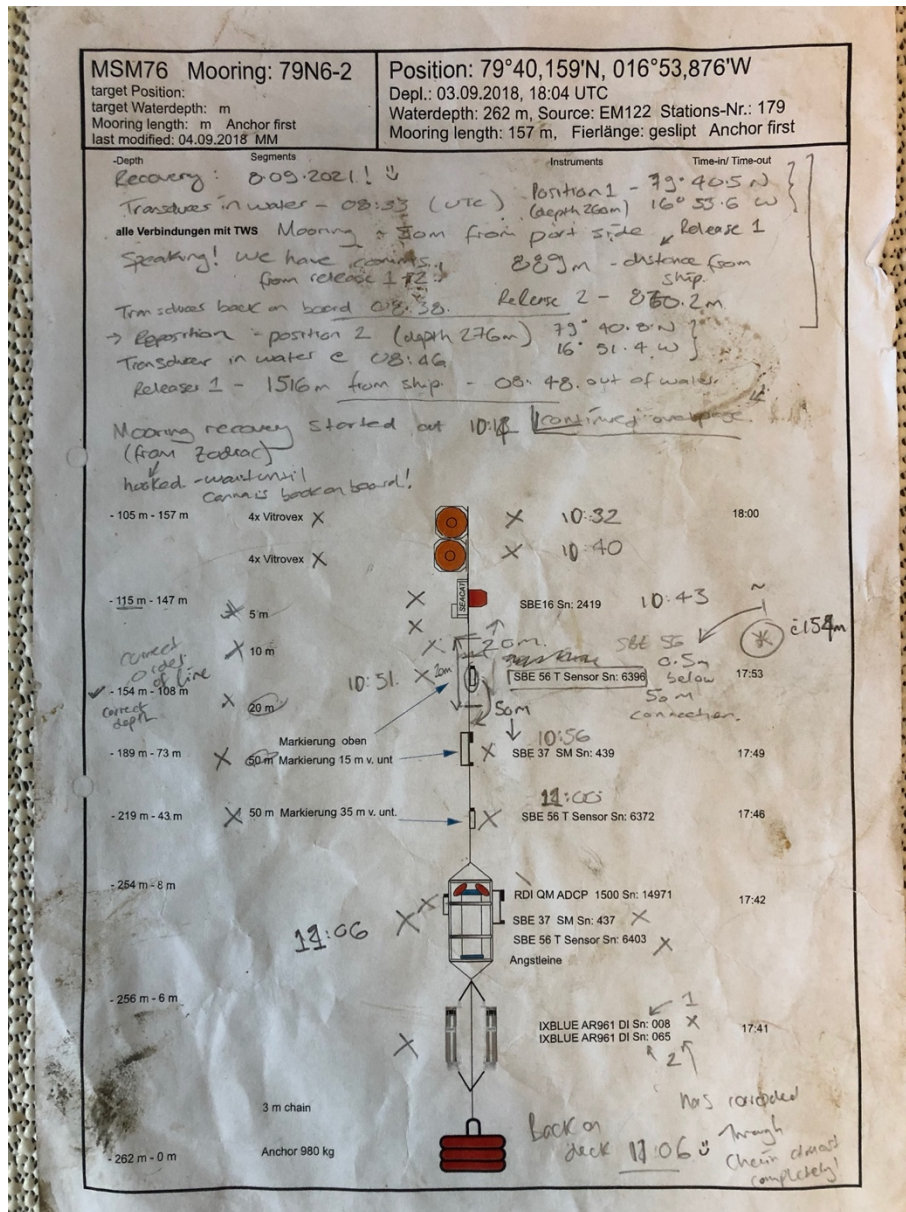 MSM76 Mooring: 79N6-2
target Position:
target Waterdepth: m
Mooring length: m Anchor first
last modified: 04.09.2018 MM
Position: 79°40,159'N, 016°53,876'W
Depl.: 03.09.2018, 18:04 UTC
Waterdepth: 262 m, Source: EM122 Stations-Nr.: 179
Mooring length: 157 m, Fierlänge: geslipt Anchor first
-Depth Segments Instruments Time-in/ Time-out
Recovery: 8.09.2021!
Position 1 - 79° 40.5 N
(depth 260m) 16° 53.6 W
Transducer in water - 08:33 (UTC)
alle Verbindungen mit TWS Mooring 50m from port side Release 1
Speaking! We have comms 889m - distance from
from release 1+2 ship.
Transducer back on board 08:38. Release 2 - 860.2m
→ Reposition - position 2 (depth 276m) 79° 40.8 N
16° 51.4 W
Transducer in water @ 08:46
Release 1 - 1516m from ship - 08:48. out of water.
Mooring recovery started at continued overpage
(from Zodiac)
hooked - wait until
back on board!
- 105 m - 157 m 4x Vitrovex X X 10:32 18:00
4x Vitrovex X X 10:40
- 115 m - 147 m SEACAT SBE16 Sn: 2419 10:43
5 m
10 m 20m. SBE 56
correct
order
of line
0.5m
below
50m
connection.
154m
10:51. 20m SBE 56 T Sensor Sn: 6396 17:53
✓ - 154 m - 108 m
correct
depth
20 m 50m
Markierung oben 10:56
- 189 m - 73 m X 50 m Markierung 15 m v. unt X SBE 37 SM Sn: 439 17:49
11:00
- 219 m - 43 m X 50 m Markierung 35 m v. unt. X SBE 56 T Sensor Sn: 6372 17:46
- 254 m - 8 m RDI QM ADCP 1500 Sn: 14971 17:42
11:06 SBE 37 SM Sn: 437 X
SBE 56 T Sensor Sn: 6403 X
Angstleine
- 256 m - 6 m 1
IXBLUE AR961 DI Sn: 008 X 17:41
IXBLUE AR961 DI Sn: 065
2
3 m chain
has corroded
through
chain almost
completely!
Back on
deck 11:06
- 262 m - 0 m Anchor 980 kg